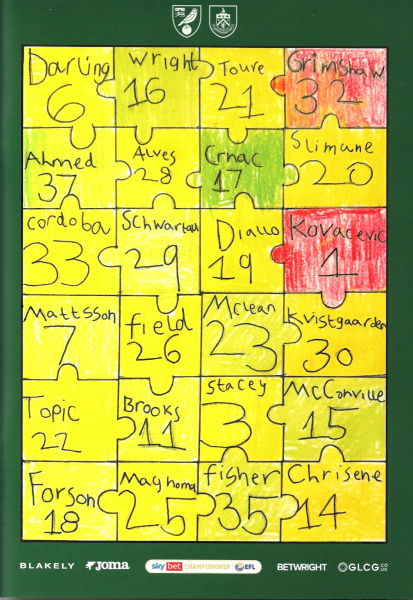 Darling
6
Wright
16
Toure
21
Grimshaw
32
Ahmed
37
Alves
28
Crnac
17
Slimane
20
Cordoba
33
Schwartau
29
Diallo
19
Kovacevic
1
Mattsson
7
field
26
Mclean
23
Kvistgaarden
30
Topic
22
Brooks
11
stacey
3
McConville
15
Forson
18
Maghoma
25
fisher
35
Chrisene
14
BLAKELY
Joma
sky bet CHAMPIONSHIP EFL
BETWRIGHT
GLCG